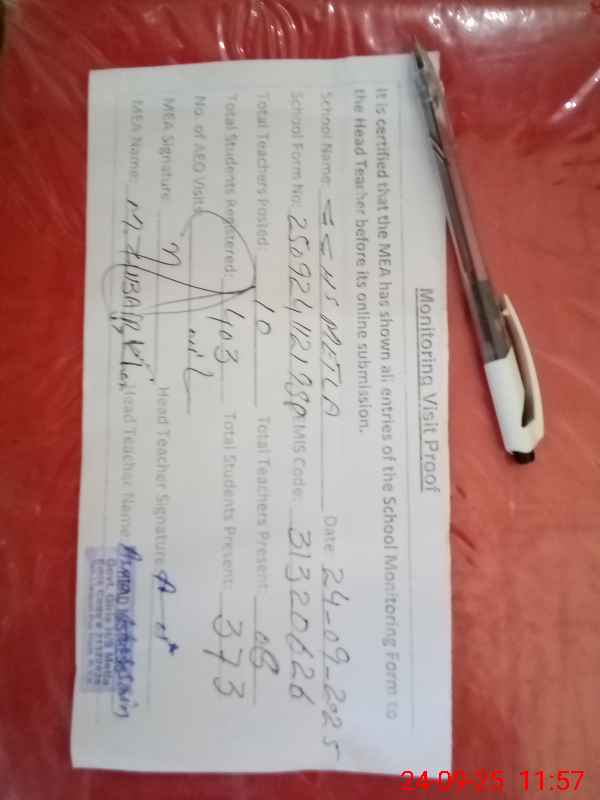 Monitoring Visit Proof
It is certified that the MEA has shown all entries of the School Monitoring Form to
the Head Teacher before its online submission.
School Name: METLA Date: 24-09-2025
School Form No: EMIS Code: 31320626
Total Teachers Posted: 10 Total Teachers Present: 08
Total Students Registered: 403 Total Students Present: 373
No. of AEO Visits: nil
MEA Signature Head Teacher Signature
MEA Name: M. ZUBAIR Khan Head Teacher Name:
Govt. H/S Metla
24-09-25 11:57